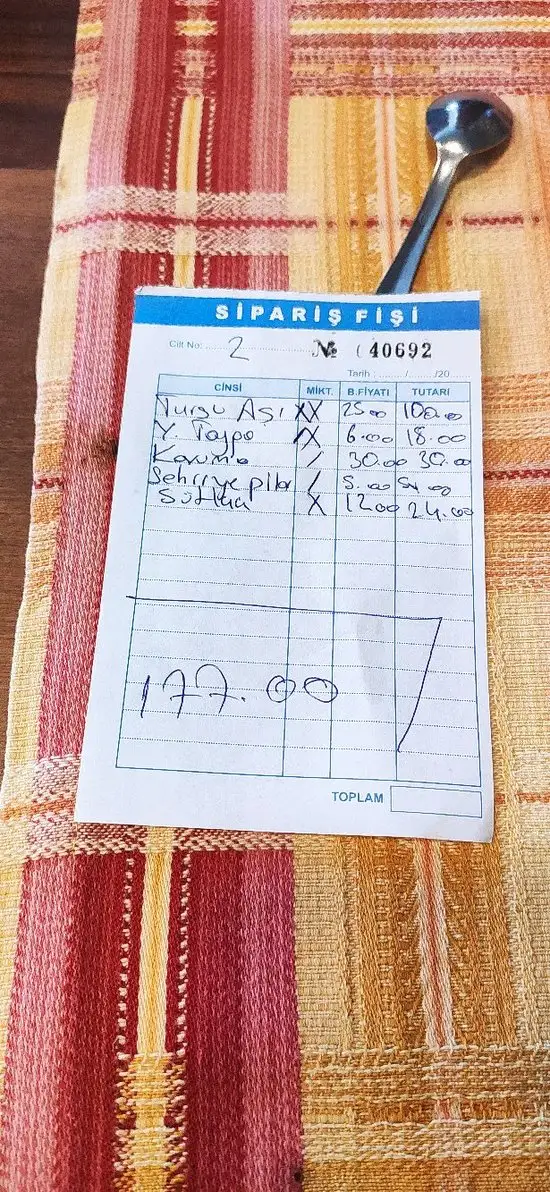 SİPARİŞ FİŞİ
Cilt No: 2 № ( 40692
Tarih : ....... / ....... /20
CİNSİ MİKT. B.FİYATI TUTARI
Aşı XX 25.00 100.00
Y. /X 6.00 18.00
/ 30.00 30.00
Şehriye / 5.00 5.00
X 12.00 24.00
177.00
TOPLAM